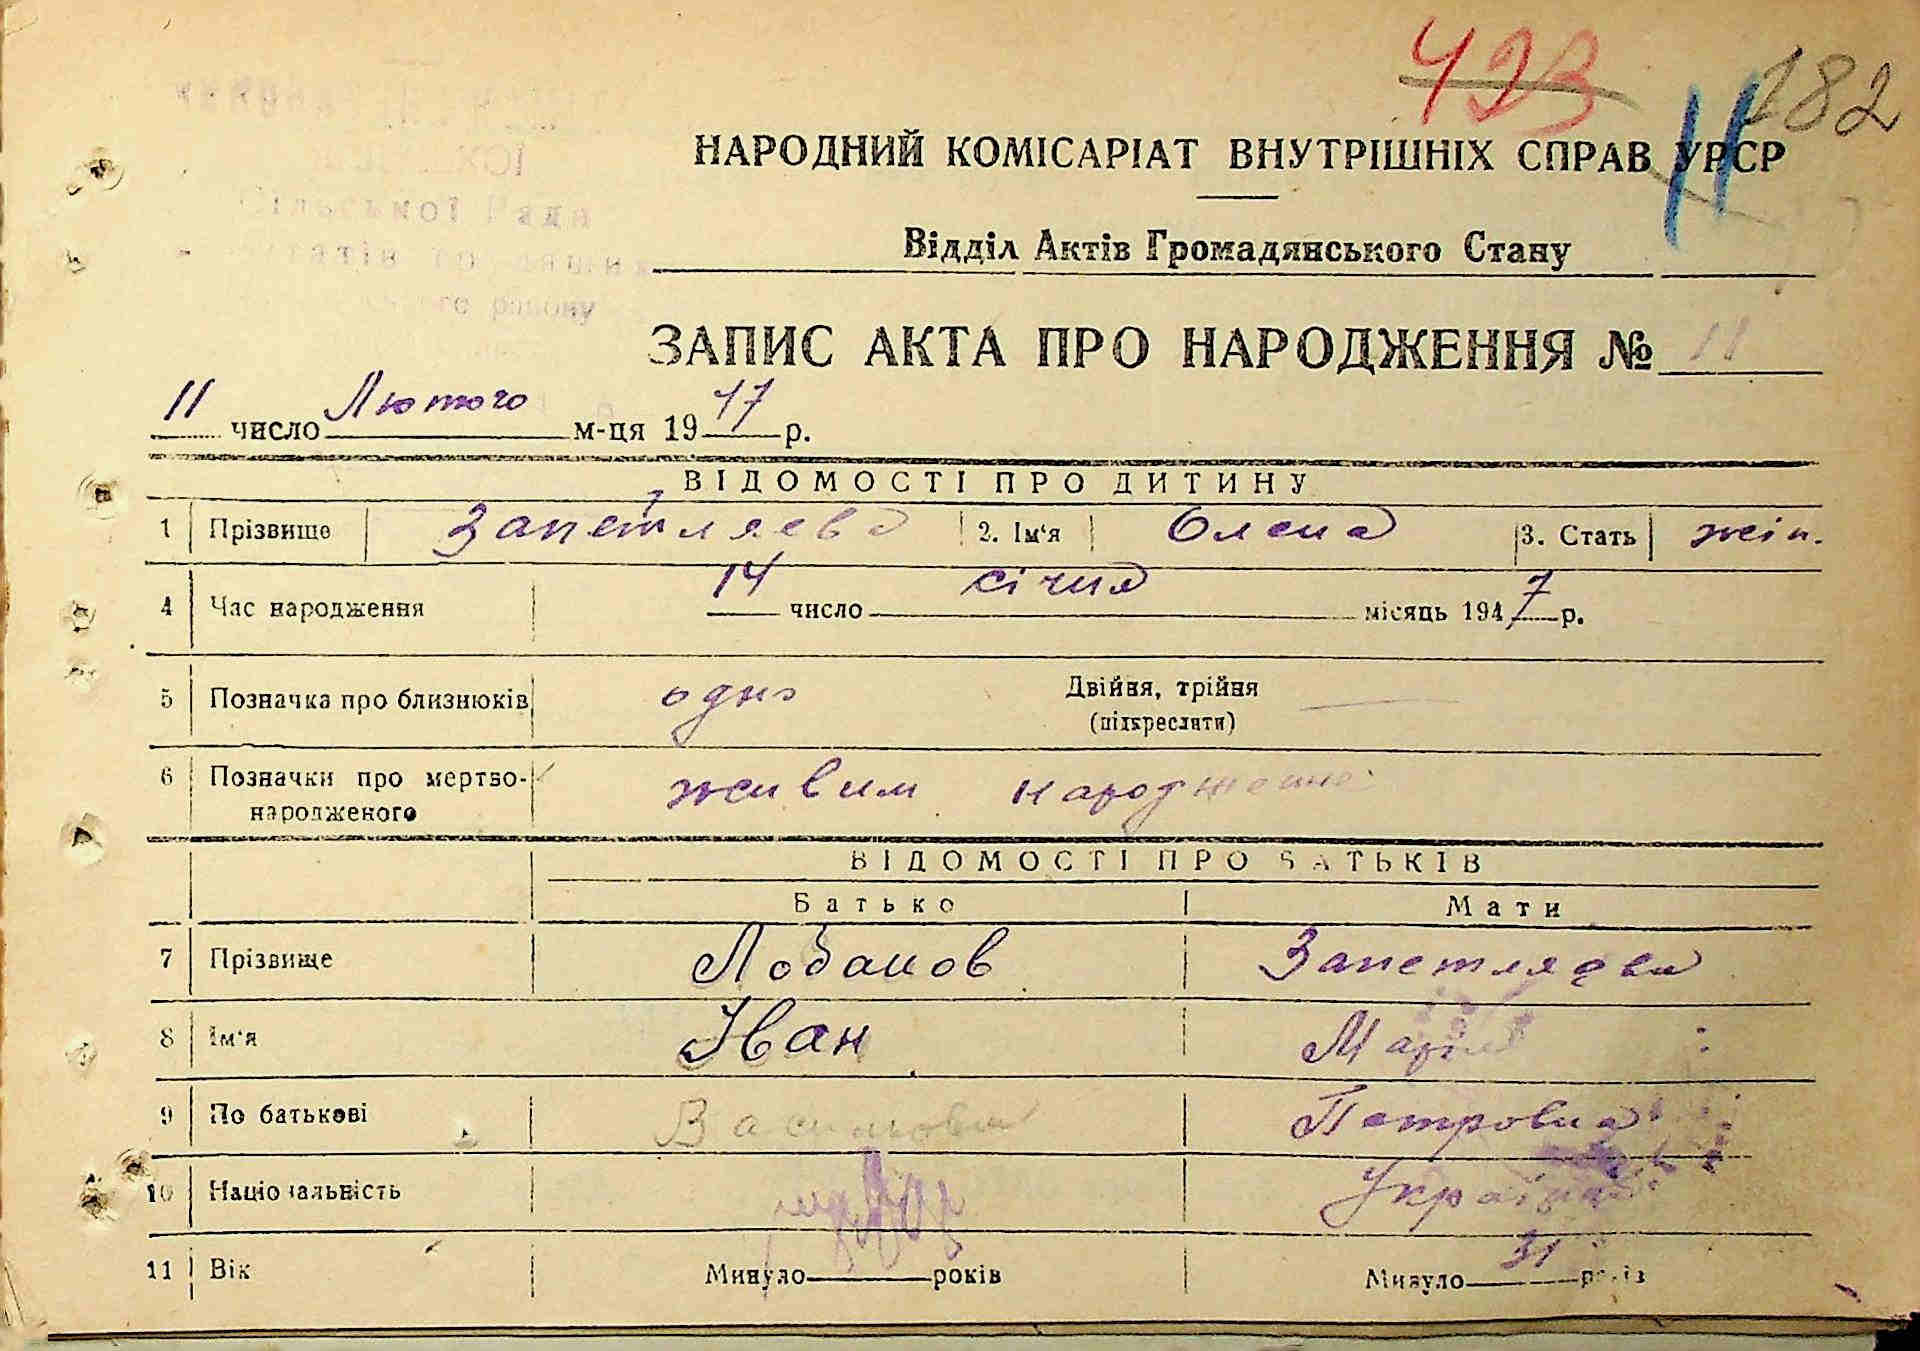 423 182
11
НАРОДНИЙ КОМІСАРІАТ ВНУТРІШНІХ СПРАВ УРСР
Відділ Актів Громадянського Стану
ЗАПИС АКТА ПРО НАРОДЖЕННЯ № 11
11 число Лютого м-ця 1947 р.
ВІДОМОСТІ ПРО ДИТИНУ
1 Прізвище Запетляева 2. Ім'я Олена 3. Стать жін.
4 Час народження 14 число січня місяць 1947 р.
5 Позначка про близнюків одно Двійня, трійня
(підкреслити)
6 Позначки про мертво-
народженого живим народжене
ВІДОМОСТІ ПРО БАТЬКІВ
Батько Мати
7 Прізвище Лобанов Запетляева
8 Ім'я Іван Марія
9 По батькові Петровна
10 Національність
11 Вік Минуло років Минуло 31 років